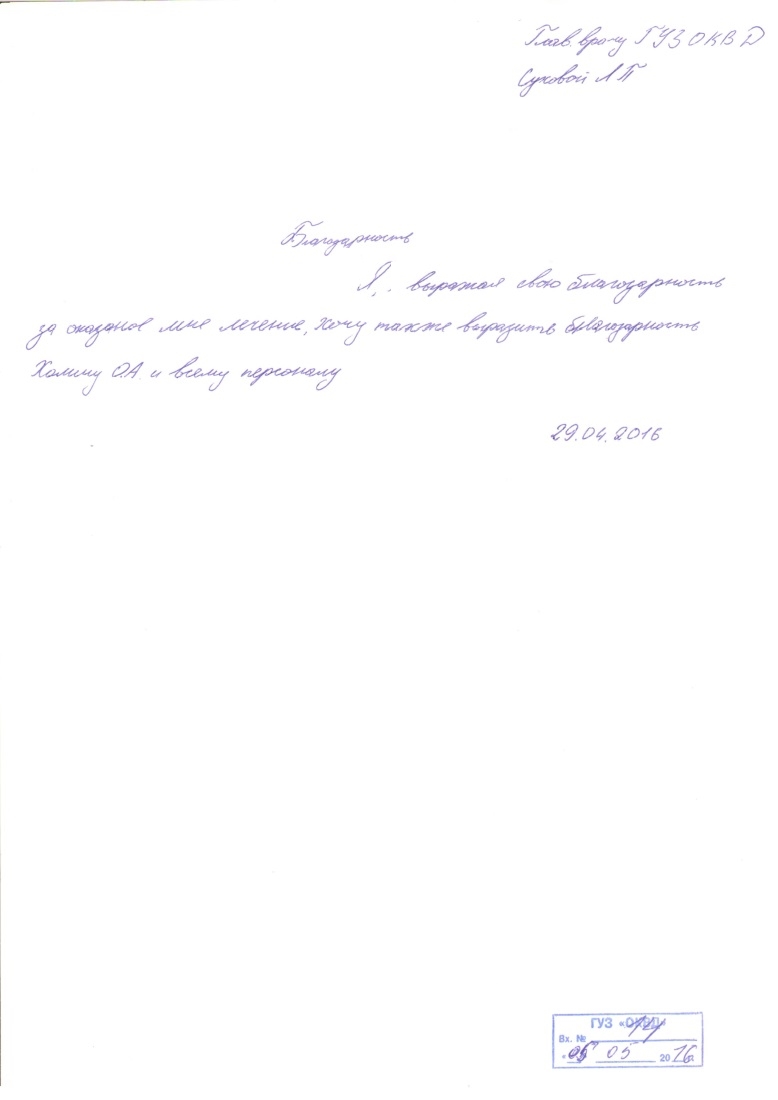 Глав. врачу ГУЗ ОКВД
Суховой Л П
Благодарность
Я, . выражая свою благодарность
за оказаное мне лечение, хочу также выразить благодарность
О.А. и всему персоналу
29.04.2016
ГУЗ «ОКВД»
Вх. № 121
05 2016г.